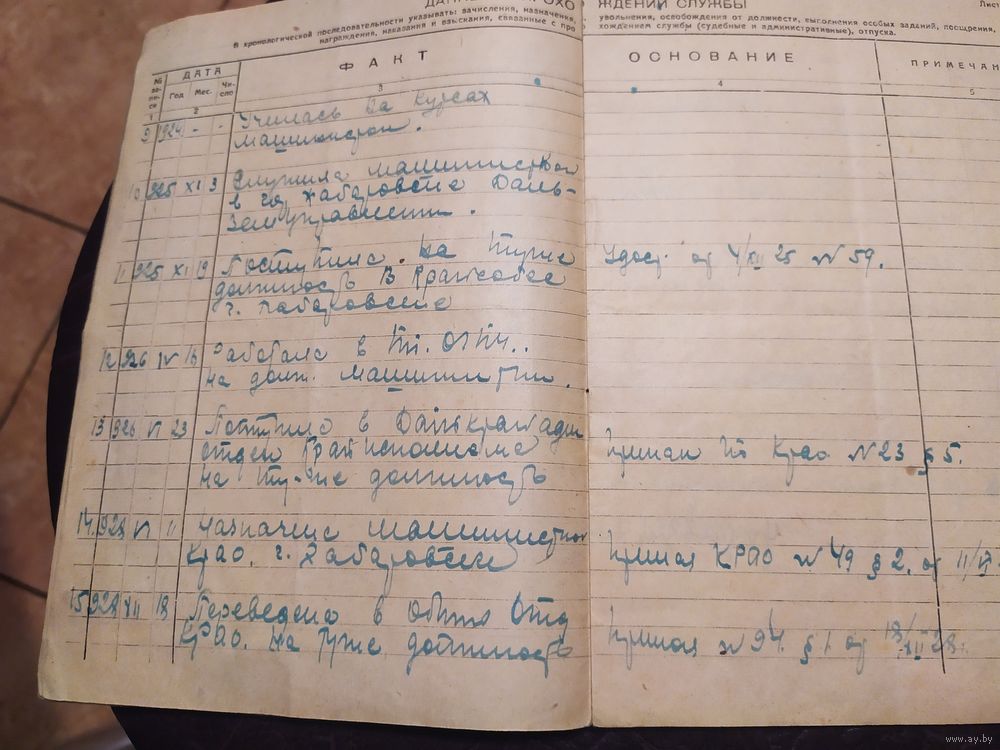 ЖДЕНИИ СЛУЖБЫ
В хронологической последовательности указывать: зачисления, назначения,
увольнения, освобождения от должности, выполнения особых заданий, поощрения,
награждения, наказания и взыскания, связанные с про
хождением службы (судебные и административные), отпуска.
№ за- пи- си
ДАТА
Год Мес. Чи- сло
ФАКТ
ОСНОВАНИЕ
ПРИМЕЧАН
1 2 3 4 5
9 1924 - - Училась на курсах
машинисток.
10 925 XI 3 Служила машинисткой
в гор. Хабаровске Даль-
земуправлении.
11 925 XI 19 Поступила на ту же
должность в
г. Хабаровске
Удост. от 4/XII 25 № 59.
12 926 IV 16 Работала в
на долж. машинистки.
13 926 VI 23 в Далькрайадм
отдел Крайисполкома
на ту-же должность
Приказ по Крао № 23 § 5.
14. 928 VI 11 Назначена машинисткой
Крао. г. Хабаровске
Приказ КРАО № 49 § 2. от 11/VI
15 928 XII 18 Переведена в Общий Отд
КРАО. на ту же должность
Приказ № 94. § 1 от 18/XII 28г.
www.ay.by